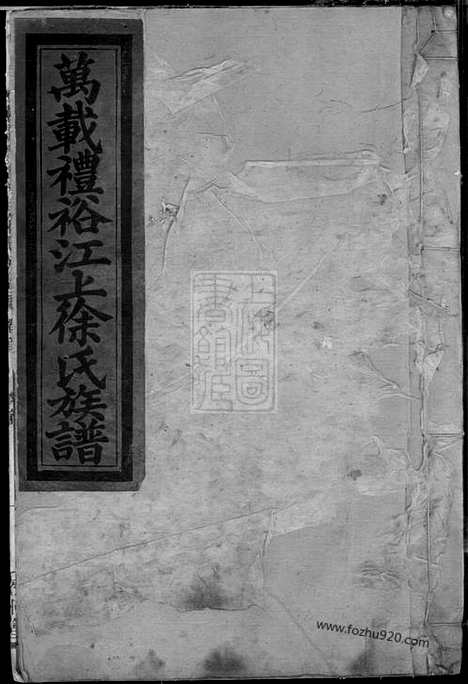 萬載禮裕江上徐氏族譜
上海圖
書館藏
www.fozhu920.com